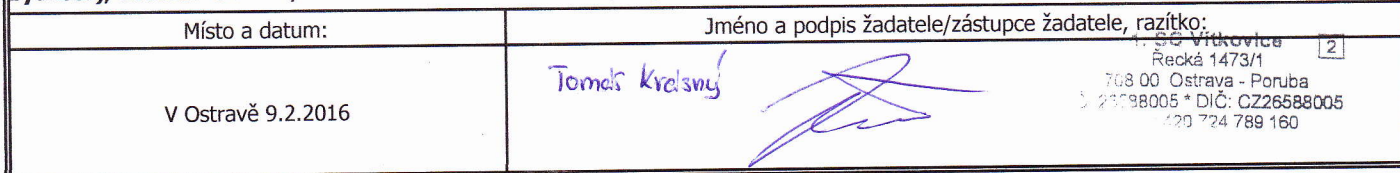 Místo a datum:
Jméno a podpis žadatele/zástupce žadatele, razítko:
V Ostravě 9.2.2016
Tomáš Krásný
1. SC Vítkovice
2
Řecká 1473/1
708 00 Ostrava - Poruba
26588005 * DIČ: CZ26588005
420 724 789 160